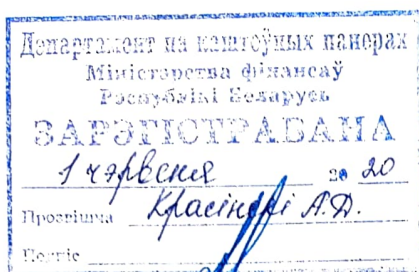 Дэпартамент па каштоўных паперах
Міністэрства фінансаў
Рэспублікі Беларусь
ЗАРЭГІСТРАВАНА
1 чэрвеня 20
Прозвішча Красінскі А.Д.
Подпіс